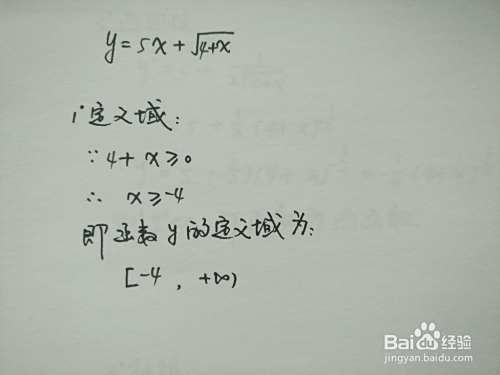 y=5x+√4+x
i 定义域:
∵4+x≥0
∴ x≥-4
即函数y的定义域为:
[-4, +∞)
Baidu经验
jingyan.baidu.com